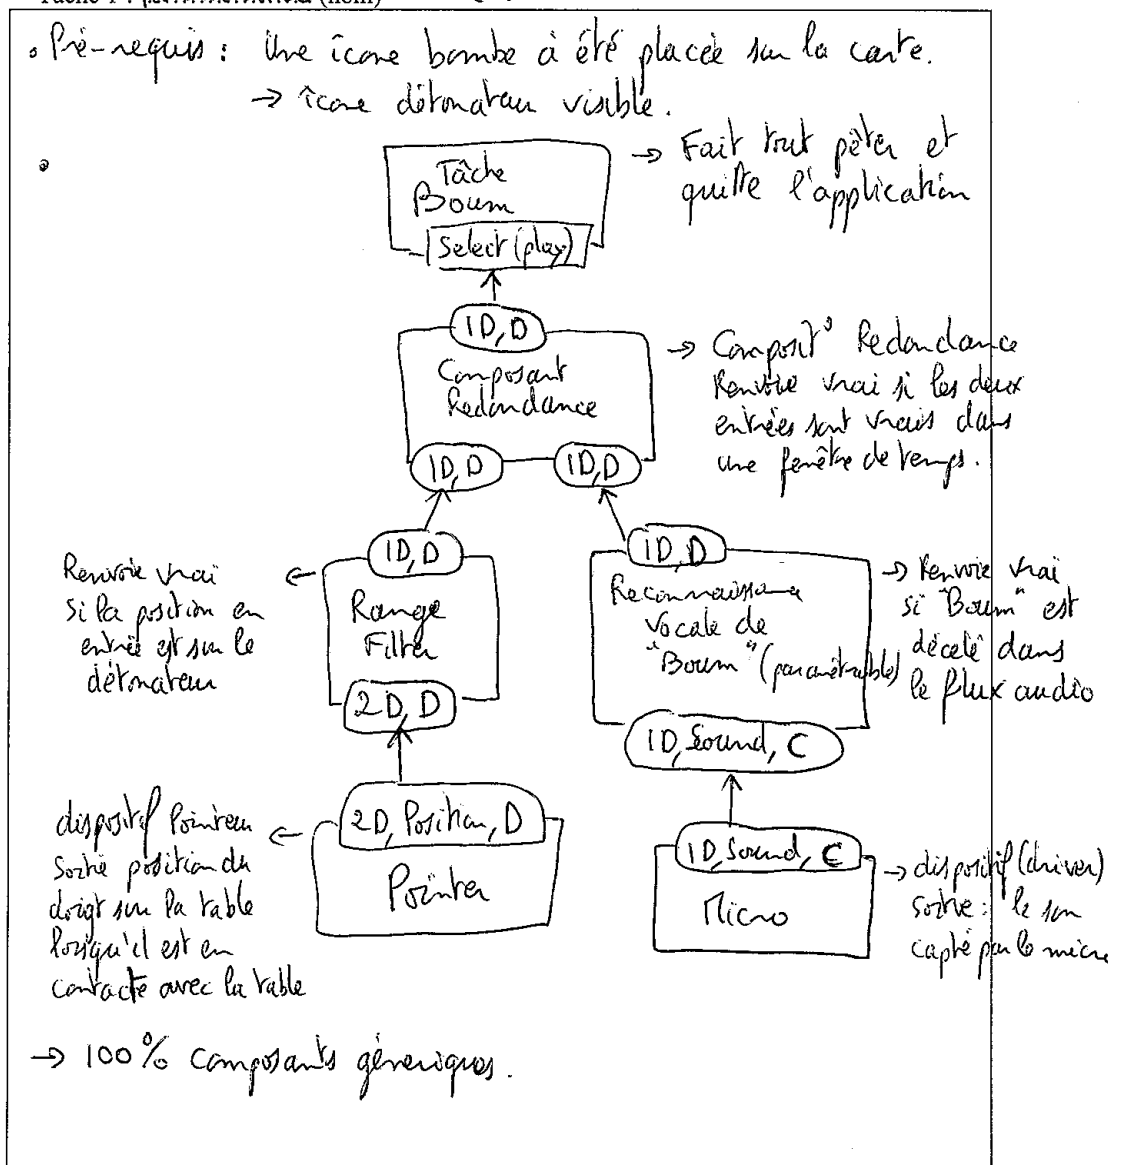 (nom)
• Pré-requis : Une îcone bombe à été placée sur la carte.
→ îcone détonateur visible.
•
Tâche
Boum
Select (play)
→ Fait tout pêter et
quitte l'application
1D, D
Composant
Redondance
1D, D
1D, D
→ Composit° Redondance
Renvoie vrai si les deux
entrées sont vrais dans
une fenêtre de temps.
1D, D
Range
Filter
2D, D
Renvoie vrai
si la position en
entrée est sur le
détonateur
1D, D
Reconnaissance
vocale de
"Boum" (paramétrable)
1D, Sound, C
→ Renvoie vrai
si "Boum" est
décelé dans
le flux audio
2D, Position, D
Pointer
dispositif Pointeur
Sortie position du
doigt sur la table
lorsqu'il est en
contacte avec la table
1D, Sound, C
Micro
→ dispositif (driver)
sortie : le son
capté par le micro
→ 100% composants géneriques.